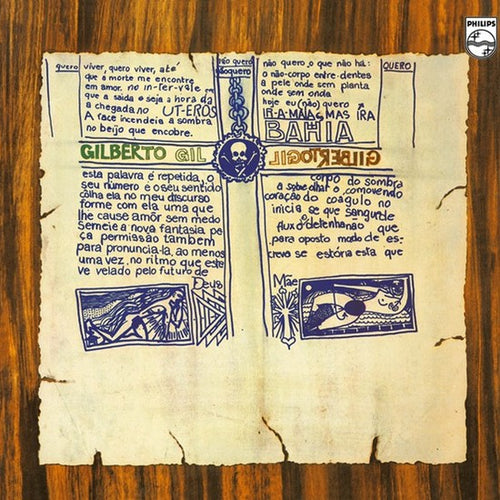 PHILIPS
quero
viver, quero viver, até
que a morte me encontre
em amor. no in-ter-vale
que a saida e seja a hora da
a chegada no UT-EROS
A face incendeia a sombra
no beijo que encobre.
não quero
nãoquero
não quero o que não há:
o não-corpo entre-dentes
a pele onde sem planta
onde sem onda
hoje eu (não) quero
IR-A-MAIAS MAS IRA
BAHIA
QUERO
GILBERTO GIL
GILBERTO GIL
esta palavra é repetida, o
seu número e o seu sentido
colha ela no meu discurso
forme com ela uma que
lhe cause amor sem medo
Semeie a nova fantasia pe
ça permissão tambem
para pronuncia-la, ao menos
uma vez, no ritmo que este
ve velado pelo futuro de
Deus
corpo do sombra
a sobre olhar o comovendo
coração do coagulo no
inicia se que sangurde
flux o detenhanão que
para oposto modo de es-
crevo se estória esta que
Mãe